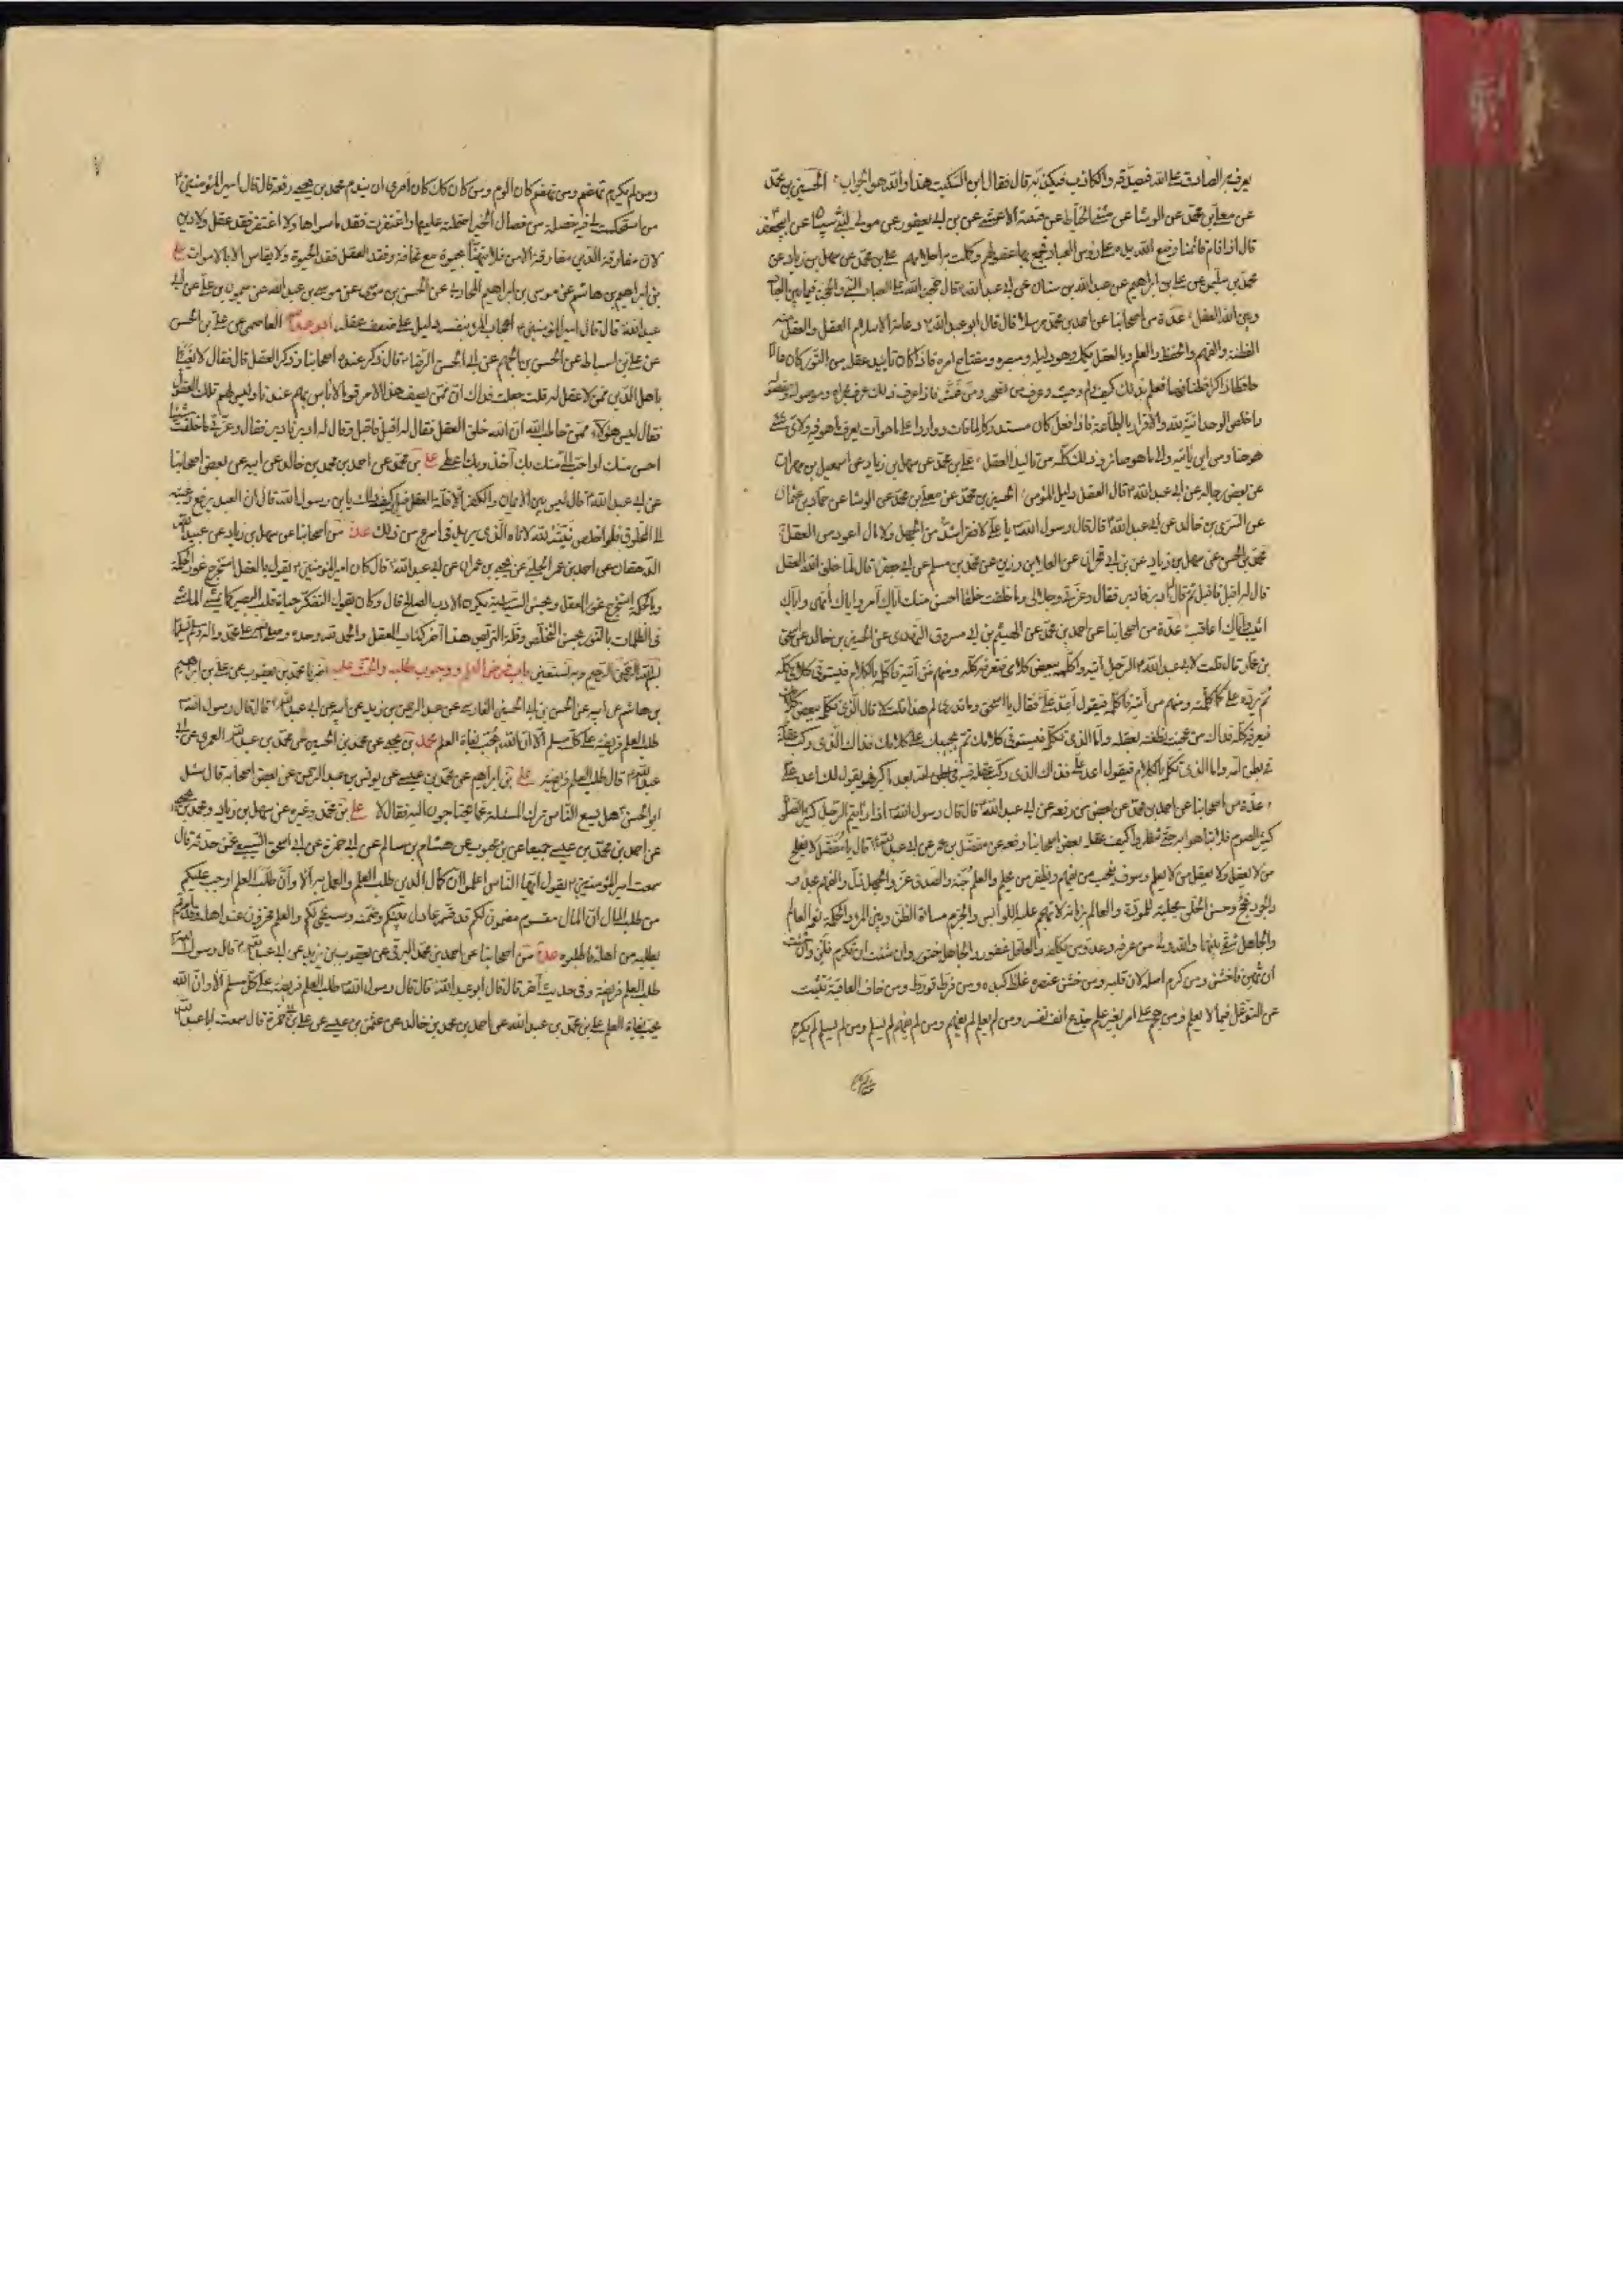 يعرف به الصادق على الله فيصدقه والكاذب فيكذبه قال فقال ابن السكيت هذا والله هو الجواب الحسين بن محمد
عن معلى بن محمد عن الوشا عن مثنى الحناط عن قتيبة الاعشى عن بن ابى يعفور عن مولى لبنى شيبان عن ابى جعفر
قال اذا قام قائمنا وضع الله يده على رؤس العباد فجمع بها عقولهم وكملت به احلامهم على بن محمد عن سهل بن زياد عن
محمد بن سليمن عن على بن ابراهيم عن عبد الله بن سنان عن ابى عبد الله قال حجة الله على العباد النبى والحجة فيما بين العباد
وبين الله العقل عدة من اصحابنا عن احمد بن محمد مرسلا قال قال ابو عبد الله دعامة الاسلام العقل والعقل منه
الفطنة والفهم والحفظ والعلم وبالعقل يكمل وهو دليله ومبصره ومفتاح امره فاذا كان تاييد عقله من النور كان عالما
حافظا ذاكرا فطنا فهما فعلم بذلك كيف ولم وحيث وعرف من نصحه ومن غشه فاذا عرف ذلك عرف مجراه وموصوله ومفصوله
واخلص الوحدانية لله والاقرار بالطاعة فاذا فعل كان مستدركا لما فات وواردا على ما هو آت يعرف ما هو فيه ولاى شئ
هو هنا ومن اين ياتيه والى ما هو صائر وذلك كله من تاييد العقل على بن محمد عن سهل بن زياد عن اسمعيل بن مهران
عن بعض رجاله عن ابى عبد الله قال العقل دليل المؤمن الحسين بن محمد عن معلى بن محمد عن الوشا عن حماد بن عثمان
عن السرى بن خالد عن ابى عبد الله قال قال رسول الله يا على لا فقر اشد من الجهل ولا مال اعود من العقل
محمد بن الحسن عن سهل بن زياد عن بن ابى نجران عن العلا بن رزين عن محمد بن مسلم عن ابى جعفر قال لما خلق الله العقل
قال له اقبل فاقبل ثم قال له ادبر فادبر فقال وعزتى وجلالى ما خلقت خلقا احسن منك اياك آمر واياك انهى واياك
اثيب واياك اعاقب عدة من اصحابنا عن احمد بن محمد عن الهيثم بن ابى مسروق النهدى عن الحسين بن خالد عن اسحق
بن عمار قال قلت لابى عبد الله الرجل آتيه واكلمه ببعض كلامى فيعرفه كله ومنهم من آتيه فاكلمه بالكلام فيستوفى كلامى كله
ثم يرده على كما كلمته ومنهم من آتيه فاكلمه فيقول اعد على فقال يا اسحق وما تدرى لم هذا قلت لا قال الذى تكلمه ببعض كلامك
فيعرفه كله فذاك من عجنت نطفته بعقله واما الذى تكلمه فيستوفى كلامك ثم يجيبك على كلامك فذاك الذى ركب عقله
فى بطن امه واما الذى تكلمه بالكلام فيقول اعد على فذاك الذى ركب عقله فيه بعد ما كبر فهو يقول لك اعد على
عدة من اصحابنا عن احمد بن محمد عن بعض من رفعه عن ابى عبد الله قال قال رسول الله اذا رايتم الرجل كثير الصلوة
كثير الصوم فلا تباهوا به حتى تنظروا كيف عقله بعض اصحابنا رفعه عن مفضل بن عمر عن ابى عبد الله قال يا مفضل لا يفلح
من لا يعقل ولا يعقل من لا يعلم وسوف ينجب من يفهم ويظفر من يحلم والعلم جنة والصدق عز والجهل ذل والفهم مجد
والجود نجح وحسن الخلق مجلبة للمودة والعالم بزمانه لا تهجم عليه اللوابس والحزم مساءة الظن وبين المرء والحكمة نعم العالم
والجاهل شقى بينهما والله ولى من عرفه وعدو من تكلفه والعاقل غفور والجاهل ختور وان شئت ان تكرم فلن وان شئت
ان تهين فاخشن ومن كرم اصله لان قلبه ومن خشن عنصره غلظ كبده ومن فرط تورط ومن خاف العاقبة تثبت
عن التوغل فيما لا يعلم ومن هجم على امر بغير علم جدع انف نفسه ومن لم يعلم لم يفهم ومن لم يفهم لم يسلم ومن لم يسلم لم يكرم
ومن لم يكرم تهضم ومن تهضم كان الوم ومن كان كذلك كان احرى ان يندم محمد بن يحيى رفعه قال قال امير المؤمنين
من استحكمت لى فيه خصلة من خصال الخير احتملته عليها واغتفرت فقد ما سواها ولا اغتفر فقد عقل ولا دين
لان مفارقة الدين مفارقة الامن فلا يتهنأ بحيوة مع مخافة وفقد العقل فقد الحيوة ولا يقاس الا بالاموات على
بن ابراهيم بن هاشم عن موسى بن ابراهيم المحاربى عن الحسن بن موسى عن موسى بن عبد الله عن ميمون بن على عن ابى
عبد الله قال قال امير المؤمنين اعجاب المرء بنفسه دليل على ضعف عقله ابو عبد الله العاصمى عن على بن الحسن
عن على بن اسباط عن الحسن بن الجهم عن ابى الحسن الرضا قال ذكر عنده اصحابنا وذكر العقل قال فقال لا يعبأ
باهل الدين ممن لا عقل له قلت جعلت فداك ان ممن يصف هذا الامر قوما لا باس بهم عندنا وليس لهم تلك العقول
فقال ليس هؤلاء ممن خاطب الله ان الله خلق العقل فقال له اقبل فاقبل وقال له ادبر فادبر فقال وعزتى ما خلقت شيئا
احسن منك او احب الى منك بك آخذ وبك اعطى على بن محمد عن احمد بن محمد بن خالد عن ابيه عن بعض اصحابنا
عن ابى عبد الله قال ليس بين الايمان والكفر الا قلة العقل قيل وكيف ذلك يا بن رسول الله قال ان العبد يرفع رغبته
الى المخلوق فلو اخلص نيته لله لاتاه الذى يريد فى اسرع من ذلك عدة من اصحابنا عن سهل بن زياد عن عبيد الله
الدهقان عن احمد بن عمر الحلبى عن يحيى بن عمران عن ابى عبد الله قال كان امير المؤمنين يقول بالعقل استخرج غور الحكمة
وبالحكمة استخرج غور العقل وبحسن السياسة يكون الادب الصالح قال وكان يقول التفكر حياة قلب البصير كما يمشى الماشى
فى الظلمات بالنور بحسن التخلص وقلة التربص هذا آخر كتاب العقل والحمد لله وحده وصلى الله على محمد وآله وسلم تسليما
بسم الله الرحمن الرحيم وبه نستعين باب فرض العلم ووجوب طلبه والحث عليه اخبرنا محمد بن يعقوب عن على بن ابراهيم
بن هاشم عن ابيه عن الحسن بن ابى الحسين الفارسى عن عبد الرحمن بن زيد عن ابيه عن ابى عبد الله قال قال رسول الله
طلب العلم فريضة على كل مسلم الا ان الله يحب بغاة العلم محمد بن يحيى عن محمد بن الحسين عن محمد بن عبد الله العمرى عن ابى
عبد الله قال طلب العلم فريضة على بن ابراهيم عن محمد بن عيسى عن يونس بن عبد الرحمن عن بعض اصحابه قال سئل
ابو الحسن هل يسع الناس ترك المسئلة عما يحتاجون اليه فقال لا على بن محمد وغيره عن سهل بن زياد ومحمد بن يحيى
عن احمد بن محمد بن عيسى جميعا عن بن محبوب عن هشام بن سالم عن ابى حمزة عن ابى اسحق السبيعى عمن حدثه قال
سمعت امير المؤمنين يقول ايها الناس اعلموا ان كمال الدين طلب العلم والعمل به الا وان طلب العلم اوجب عليكم
من طلب المال ان المال مقسوم مضمون لكم قد قسمه عادل بينكم وضمنه وسيفى لكم والعلم مخزون عند اهله وقد امرتم
بطلبه من اهله فاطلبوه عدة من اصحابنا عن احمد بن محمد البرقى عن يعقوب بن يزيد عن ابى عبد الله قال رسول الله
طلب العلم فريضة وفى حديث آخر قال قال ابو عبد الله قال قال رسول الله طلب العلم فريضة على كل مسلم الا وان الله
يحب بغاة العلم على بن محمد بن عبد الله عن احمد بن محمد بن خالد عن عثمن بن عيسى عن على بن ابى حمزة قال سمعت ابا عبد الله